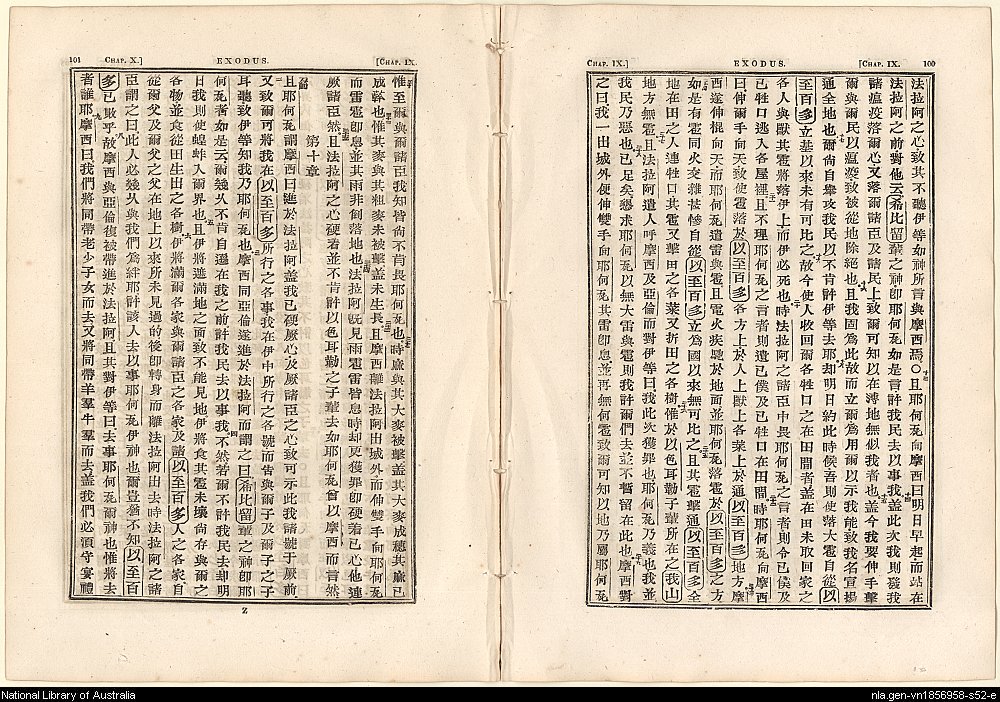 100
[CHAP. IX.
EXODUS.
CHAP. IX.]
法拉阿之心致其不聽伊等如神所言與摩西焉○且耶何瓦向摩西曰明日早起而站在
法拉阿之前對他云希比留輩之神即耶何瓦如是言許我民去以事我蓋此次我則發我
諸瘟疫落爾心又落爾諸臣及諸民上致爾可知以在溥地無似我者也蓋今我要伸手擊
爾與爾民以瘟疫致被從地除絕也且我固爲此故而立爾爲用爾以示我能致我名宣揚
通全地也爾尚自舉攻我民以不肯許伊等去耶却明日約此時候吾則使落大雹自從以
至百多立基以來未有可比之故今使人收回爾各牲口之在田間者蓋在田未取回家之
各人與獸其雹將落伊上而伊必死也時法拉阿之諸臣中畏耶何瓦之言者則令已僕及
已牲口逃入各屋裡且不理耶何瓦之言者則遺已僕及已牲口在田間時耶何瓦向摩西
曰伸爾手向天致使雹落於以至百多各方上於人上獸上各菜上於通以至百多地方摩
西遂伸棍向天而耶何瓦遣雷與雹且電火疾馳於地面並耶何瓦落雹於以至百多之方
如是有雹同火交雜甚慘自從以至百多立爲國以來無可比之且其雹擊通以至百多全
地在田之人連牲口其雹又擊田之各菜又折田之各樹惟於以色耳勒子輩所在之我山
地方無雹且法拉阿遣人呼摩西及亞倫而對伊等曰我此次獲罪也耶何瓦乃義也我並
我民乃惡也已足矣懇求耶何瓦以無大雷與雹則我許爾們去並不暫留在此也摩西對
之曰我一出城外便伸雙手向耶何瓦其雷即息並再無何雹致爾可知以地乃屬耶何瓦
[CHAP. IX.
EXODUS.
CHAP. X.]
101
惟至爾與爾諸臣我知皆尚不肯畏耶何瓦也時廉與其大麥被擊蓋其大麥成穗其廉已
成幹也惟其麥與其粗麥未被擊蓋未生長且摩西離法拉阿出城外而伸雙手向耶何瓦
而雷雹卽息並其雨非倒落地也法拉阿旣見雨雹雷皆息時却更獲罪卽硬着已心他連
厥諸臣然且法拉阿之心硬着並不肯許以色耳勒之子輩去如耶何瓦曾以摩西而言然
第十章
且耶何瓦謂摩西曰進於法拉阿蓋我已硬厥心及厥諸臣之心致可示此我諸號于厥前
又致爾可將我在以至百多所行之各事我在伊中所行之各號而告與爾子及爾子之子
耳聽致伊等知我乃耶何瓦也摩西同亞倫遂進於法拉阿而謂之曰希比留輩之神卽耶
何瓦者如是云爾幾久不肯自遜在我之前許我民去以事我不然若爾不許我民去却明
日我則使蝗蚱入爾界也且伊將遮滿地之面致不能見地伊將食其雹未壞尚存與爾之
各物並食從田生出之各樹伊將滿爾各家與爾諸臣之各家及諸以至百多人之各家自
從爾父及爾父之父在地上以來所未見過的後卽轉身而離法拉阿出去時法拉阿之諸
臣謂之曰此人必幾久與我們爲絆耶許該人去以事耶何瓦伊神也爾豈猶不知以至百
多已敗乎故摩西與亞倫復被帶進於法拉阿且其對伊等曰去事耶何瓦爾神也惟將去
者誰耶摩西曰我們將同帶老少子女而去又將同帶羊羣牛羣而去蓋我們必須守宴禮
Z
National Library of Australia
nla.gen-vn1856958-s52-e